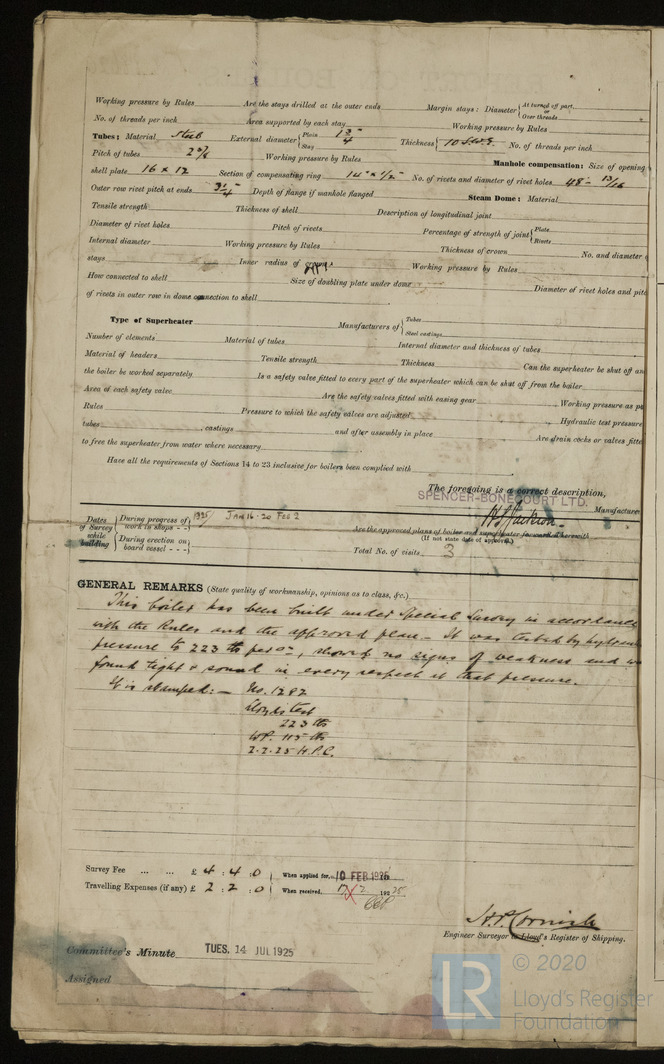 Working pressure by Rules Are the stays drilled at the outer ends Margin stays: Diameter { At turned off part, or Over threads
No. of threads per inch Area supported by each stay Working pressure by Rules
Tubes: Material Steel External diameter { Plain 1 3/4" Stay Thickness { 10 S.W.G. No. of threads per inch
Pitch of tubes 2 5/8 Working pressure by Rules Manhole compensation: Size of opening
shell plate 16 x 12 Section of compensating ring 14" x 1/2" No. of rivets and diameter of rivet holes 48 - 13/16
Outer row rivet pitch at ends 3 1/4" Depth of flange if manhole flanged Steam Dome: Material
Tensile strength Thickness of shell Description of longitudinal joint
Diameter of rivet holes Pitch of rivets Percentage of strength of joint { Plate Rivets
Internal diameter Working pressure by Rules Thickness of crown No. and diameter
stays Inner radius of crown Working pressure by Rules
How connected to shell Size of doubling plate under dome Diameter of rivet holes and pitc
of rivets in outer row in dome connection to shell
Type of Superheater Manufacturers of { Tubes Steel castings
Number of elements Material of tubes Internal diameter and thickness of tubes
Material of headers Tensile strength Thickness Can the superheater be shut off an
the boiler be worked separately Is a safety valve fitted to every part of the superheater which can be shut off from the boiler
Area of each safety valve Are the safety valves fitted with easing gear Working pressure as pe
Rules Pressure to which the safety valves are adjusted Hydraulic test pressure
tubes , castings and after assembly in place Are drain cocks or valves fitte
to free the superheater from water where necessary
Have all the requirements of Sections 14 to 23 inclusive for boilers been complied with
The foregoing is a correct description,
SPENCER-BONECOURT LTD.
Manufacturer
Dates of Survey while building { During progress of work in shops - - } 1925/ JAN 16 - 20 FEB 2
Are the approved plans of boiler and superheater forwarded herewith
(If not state date of approval.)
{ During erection on board vessel - - - }
Total No. of visits 3
GENERAL REMARKS (State quality of workmanship, opinions as to class, &c.)
This boiler has been built under Special Survey in accordance
with the Rules and the approved plan - It was tested by hydraulic
pressure to 223 lb per □", showed no signs of weakness and w
found tight & sound in every respect at that pressure.
It is stamped: - No. 1292
Lloyds test
223 lb
WP. 115 lb
2.2.25 H.P.C.
Survey Fee ... ... £ 4 : 4 : 0 When applied for, 10 FEB 1925
Travelling Expenses (if any) £ 2 : 2 : 0 When received, 192 25
H.P. Cornish
Engineer Surveyor to Lloyd's Register of Shipping.
Committee's Minute TUES. 14 JUL 1925
Assigned
LR © 2020
Lloyd's Register
Foundation